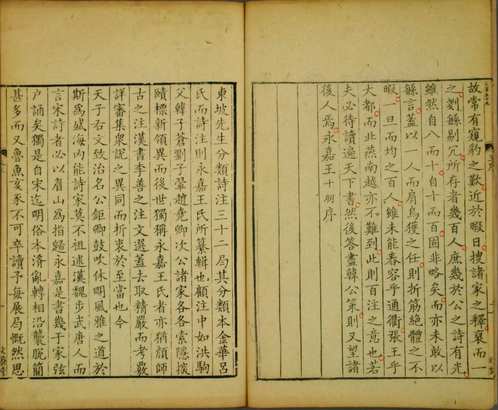 故常有窺豹之歎近於暇日搜諸家之釋裒而一
之剗繇剔冗所存者幾百人庶幾於公之詩有光
雖然自八而十自十而百固非略矣而亦未敢以
繇言蓋以一人而肩烏獲之任則折筋絕體之不
暇一旦而均之百人雖未能舂容乎通衢張王乎
大都而北燕南越亦不難到此則百注之意也若
夫必待讀遍天下書然後答盡韓公策則又望諸
後人焉永嘉王十朋序
東坡先生分類詩注三十二局其分類本金華呂
氏而詩注則永嘉王氏所纂輯也顧注中如洪駒
父韓子蒼劉子翬趙堯卿次公諸家各各索隱探
賾標新領異而後世獨稱永嘉王氏者亦稱顏師
古之注漢書李善之注文選蓋去取精嚴而考覈
詳審集眾說之異同而折衷於至當也今
天子右文致治名公鉅卿鼓吹休明風雅之道於
斯為盛海內能詩家莫不祖述漢魏步武唐人而
言宋詩者必以眉山為指歸永嘉是書幾于家弦
戶誦矣獨是自宋迄明俗本淆亂轉相沿襲脫簡
甚多而又魯魚亥豕不可卒讀予每展局慨然思